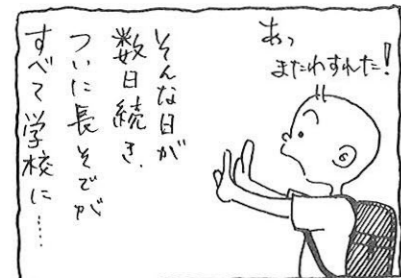 あっ
またわすれた！
そんな日が
数日続き、
ついに長そでが
すべて学校に……